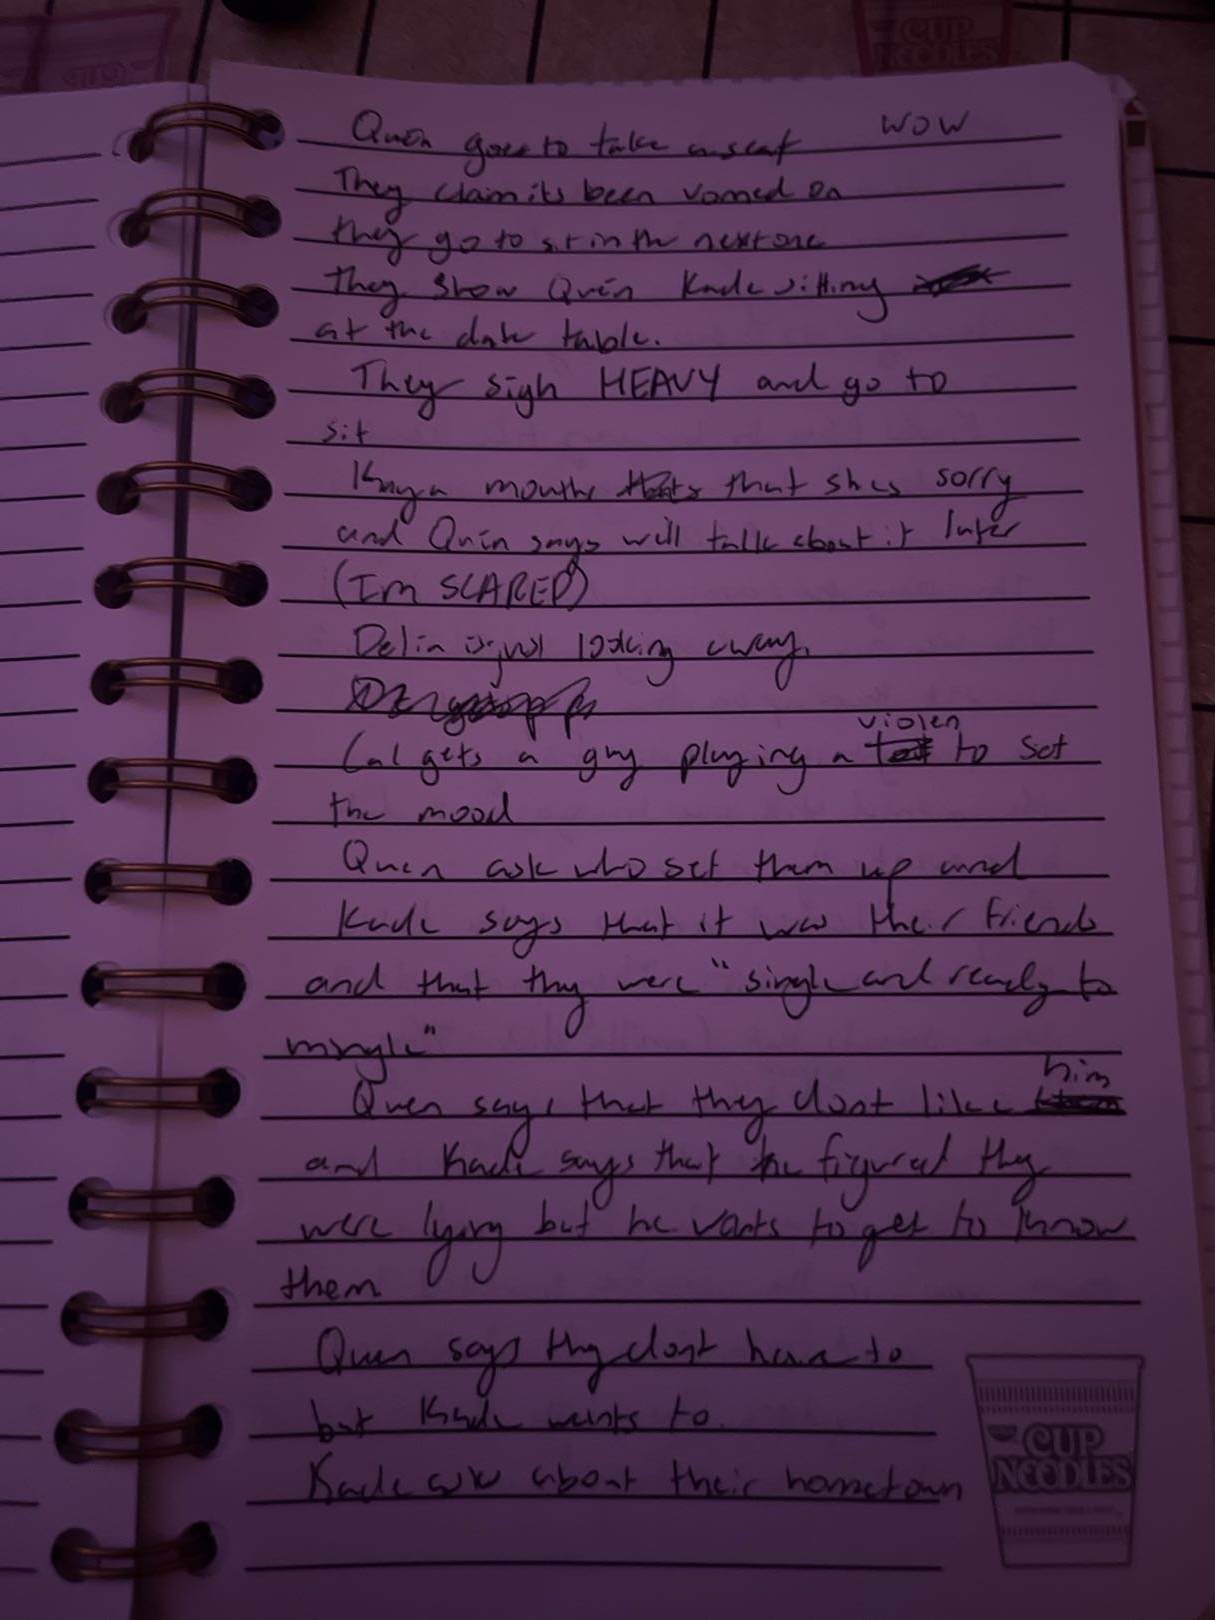 CUP
NOODLES
Quen goes to take a seat WOW
They claim its been vomed on
they go to sit in the next one
they show Quen Kade sitting
at the date table.
They sigh HEAVY and go to
sit
Kaya mouths that shes sorry
and Quen says will talk about it later
(Im SCARED)
Delin is just looking away.
Cal gets a guy playing a violen to set
the mood
Quen ask who set them up and
Kade says that it was their friends
and that they were "single and ready to
mingle"
Quen says that they dont like him
and Kade says that he figured they
were lying but he wants to get to know
them
Quen says they dont have to
but Kade wants to.
Kade ask about their hometown
CUP
NOODLES